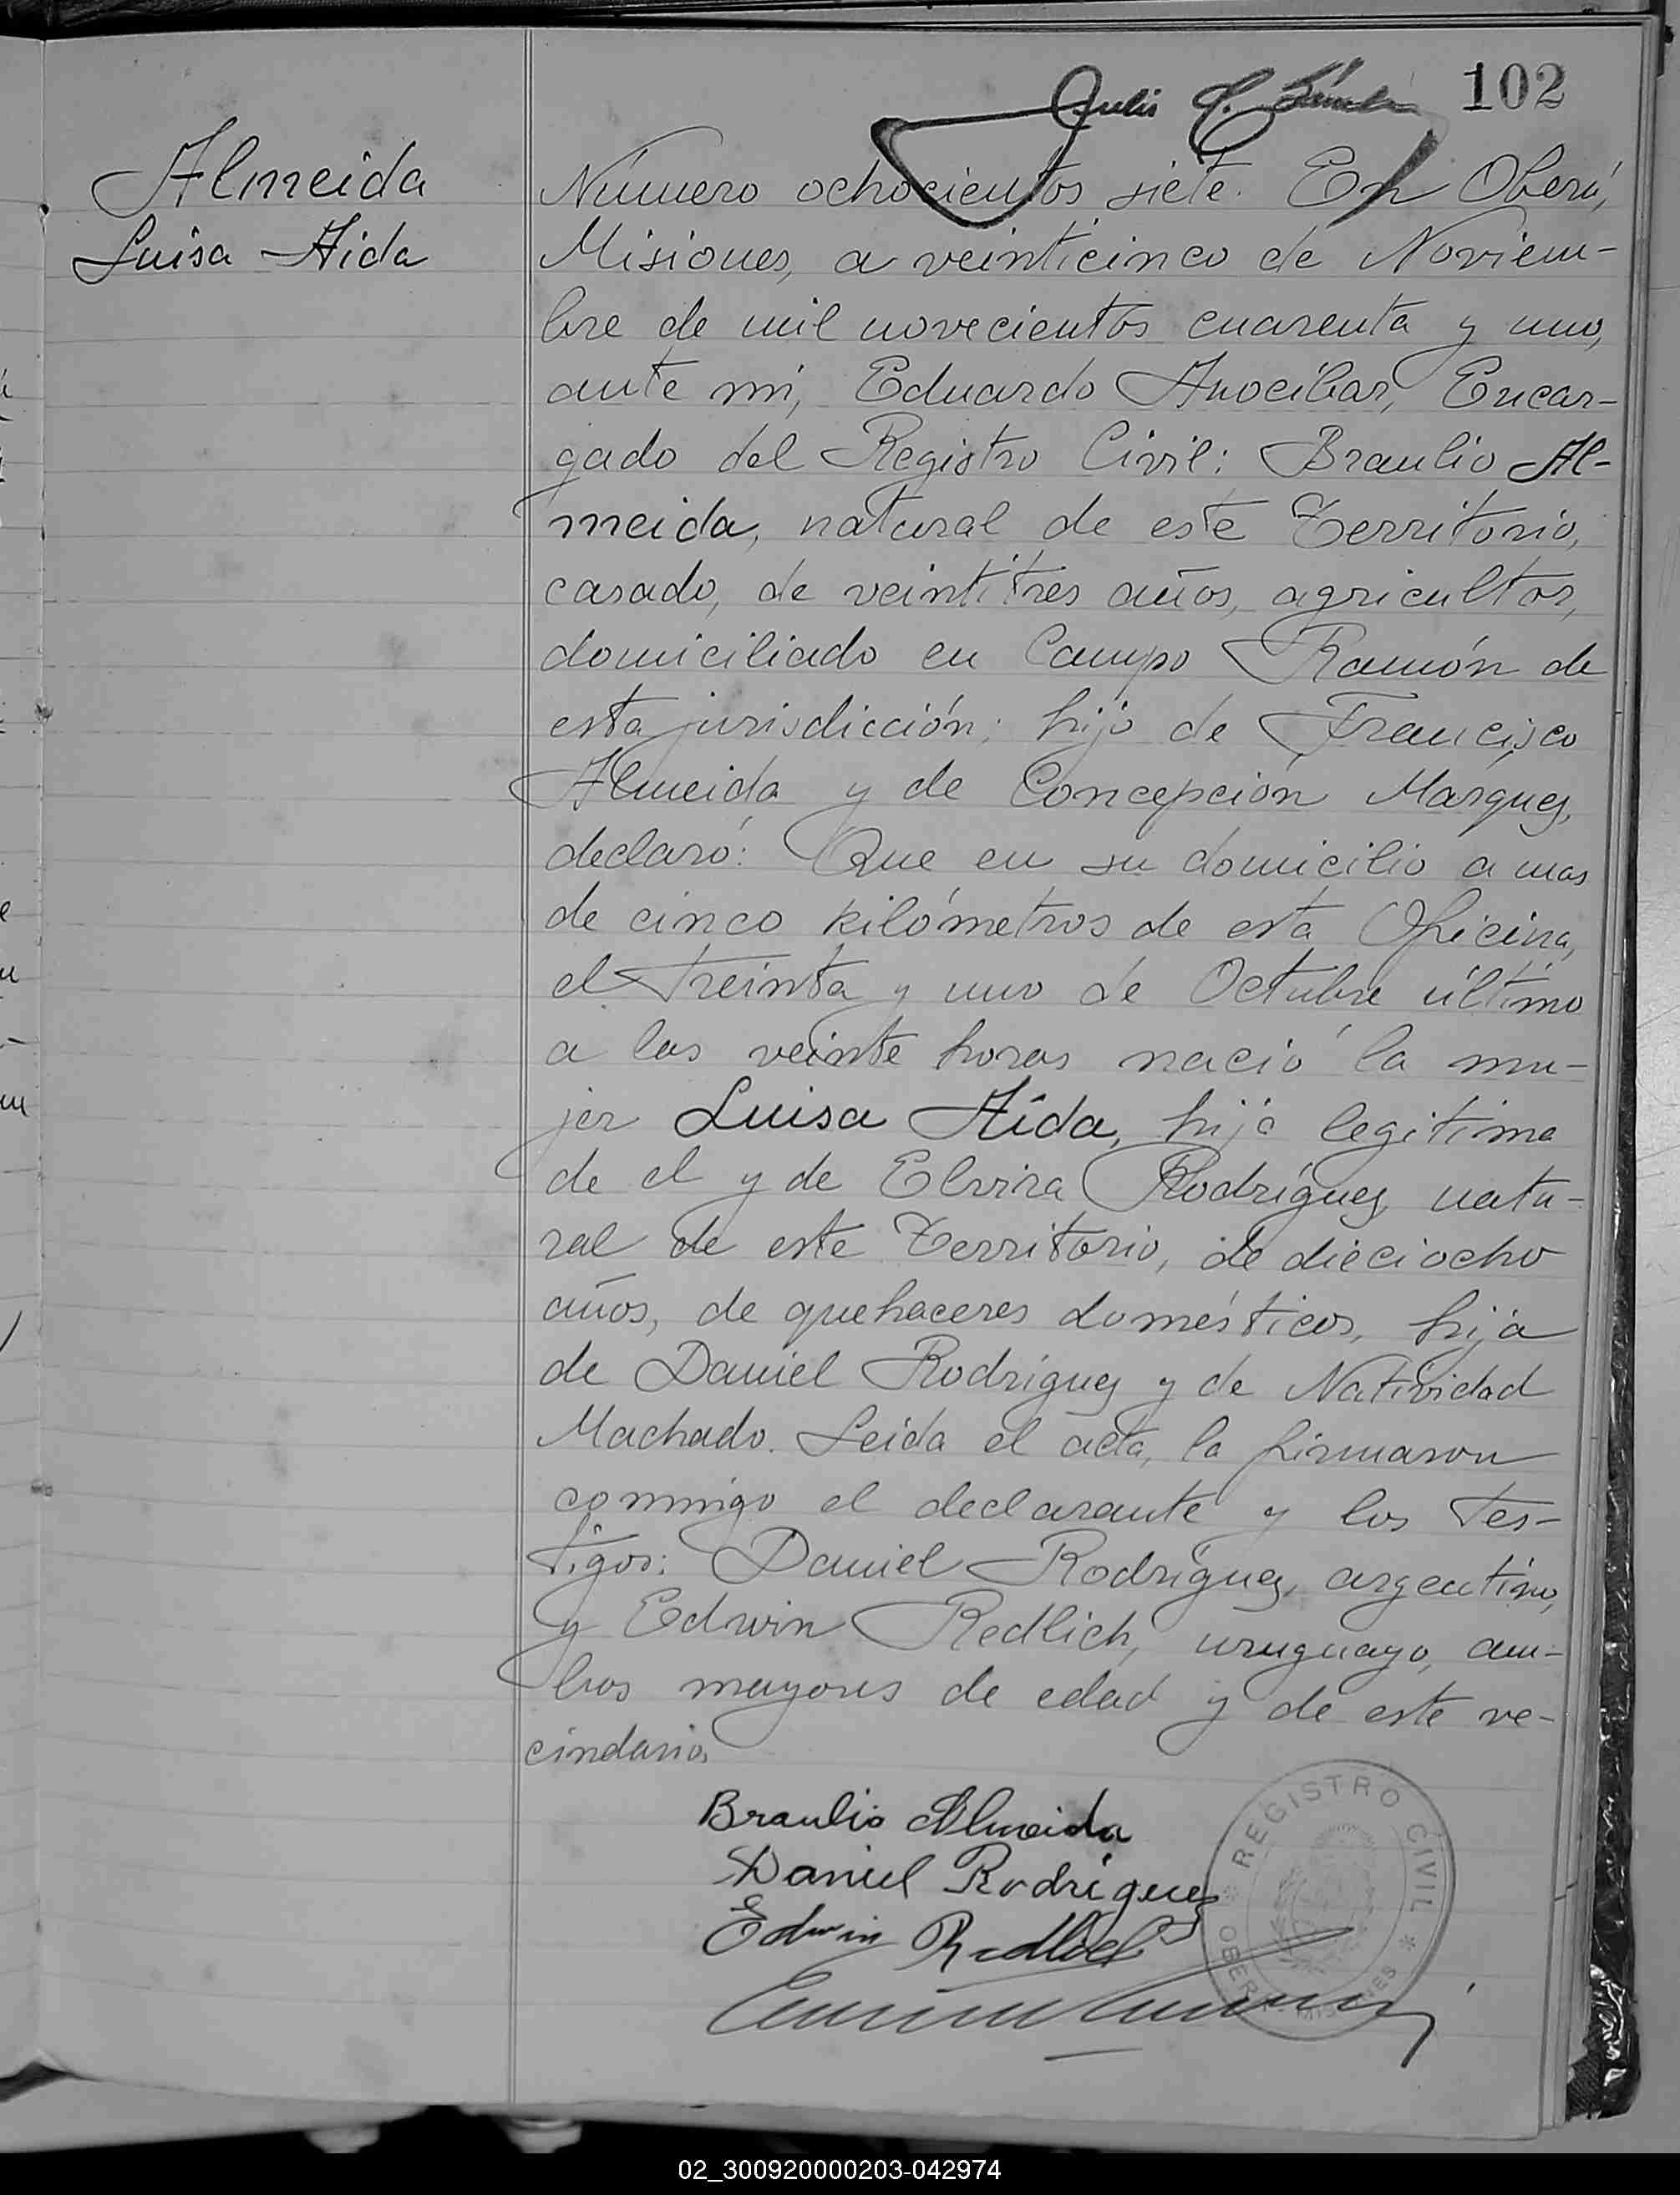 102
Julio
Almeida
Luisa Aida
Número ochocientos siete. En Oberá,
Misiones, a veinticinco de Noviem-
bre de mil novecientos cuarenta y uno,
ante mi, Eduardo Anocibar, Encar-
gado del Registro Civil: Braulio Al-
meida, natural de este Territorio,
casado, de veintitres años, agricultor,
domiciliado en Campo Ramón de
esta jurisdicción; hijo de Francisco
Almeida y de Concepción Marques,
declaró: Que en su domicilio a mas
de cinco kilómetros de esta Oficina,
el treinta y uno de Octubre último
a las veinte horas nació la mu-
jer Luisa Aída, hija legitima
de el y de Elvira Rodríguez, natu-
ral de este Territorio, de dieciocho
años, de quehaceres domésticos, hija
de Daniel Rodríguez y de Natividad
Machado. Leida el acta, la firmaron
conmigo el declarante y los tes-
tigos: Daniel Rodríguez, argentino,
y Edwin Redlich, uruguayo, am-
bos mayores de edad y de este ve-
cindario.
Braulio Almeida
Daniel Rodriguez
Edwin Redlich
REGISTRO CIVIL
OBERA MISIONES
02_300920000203-042974